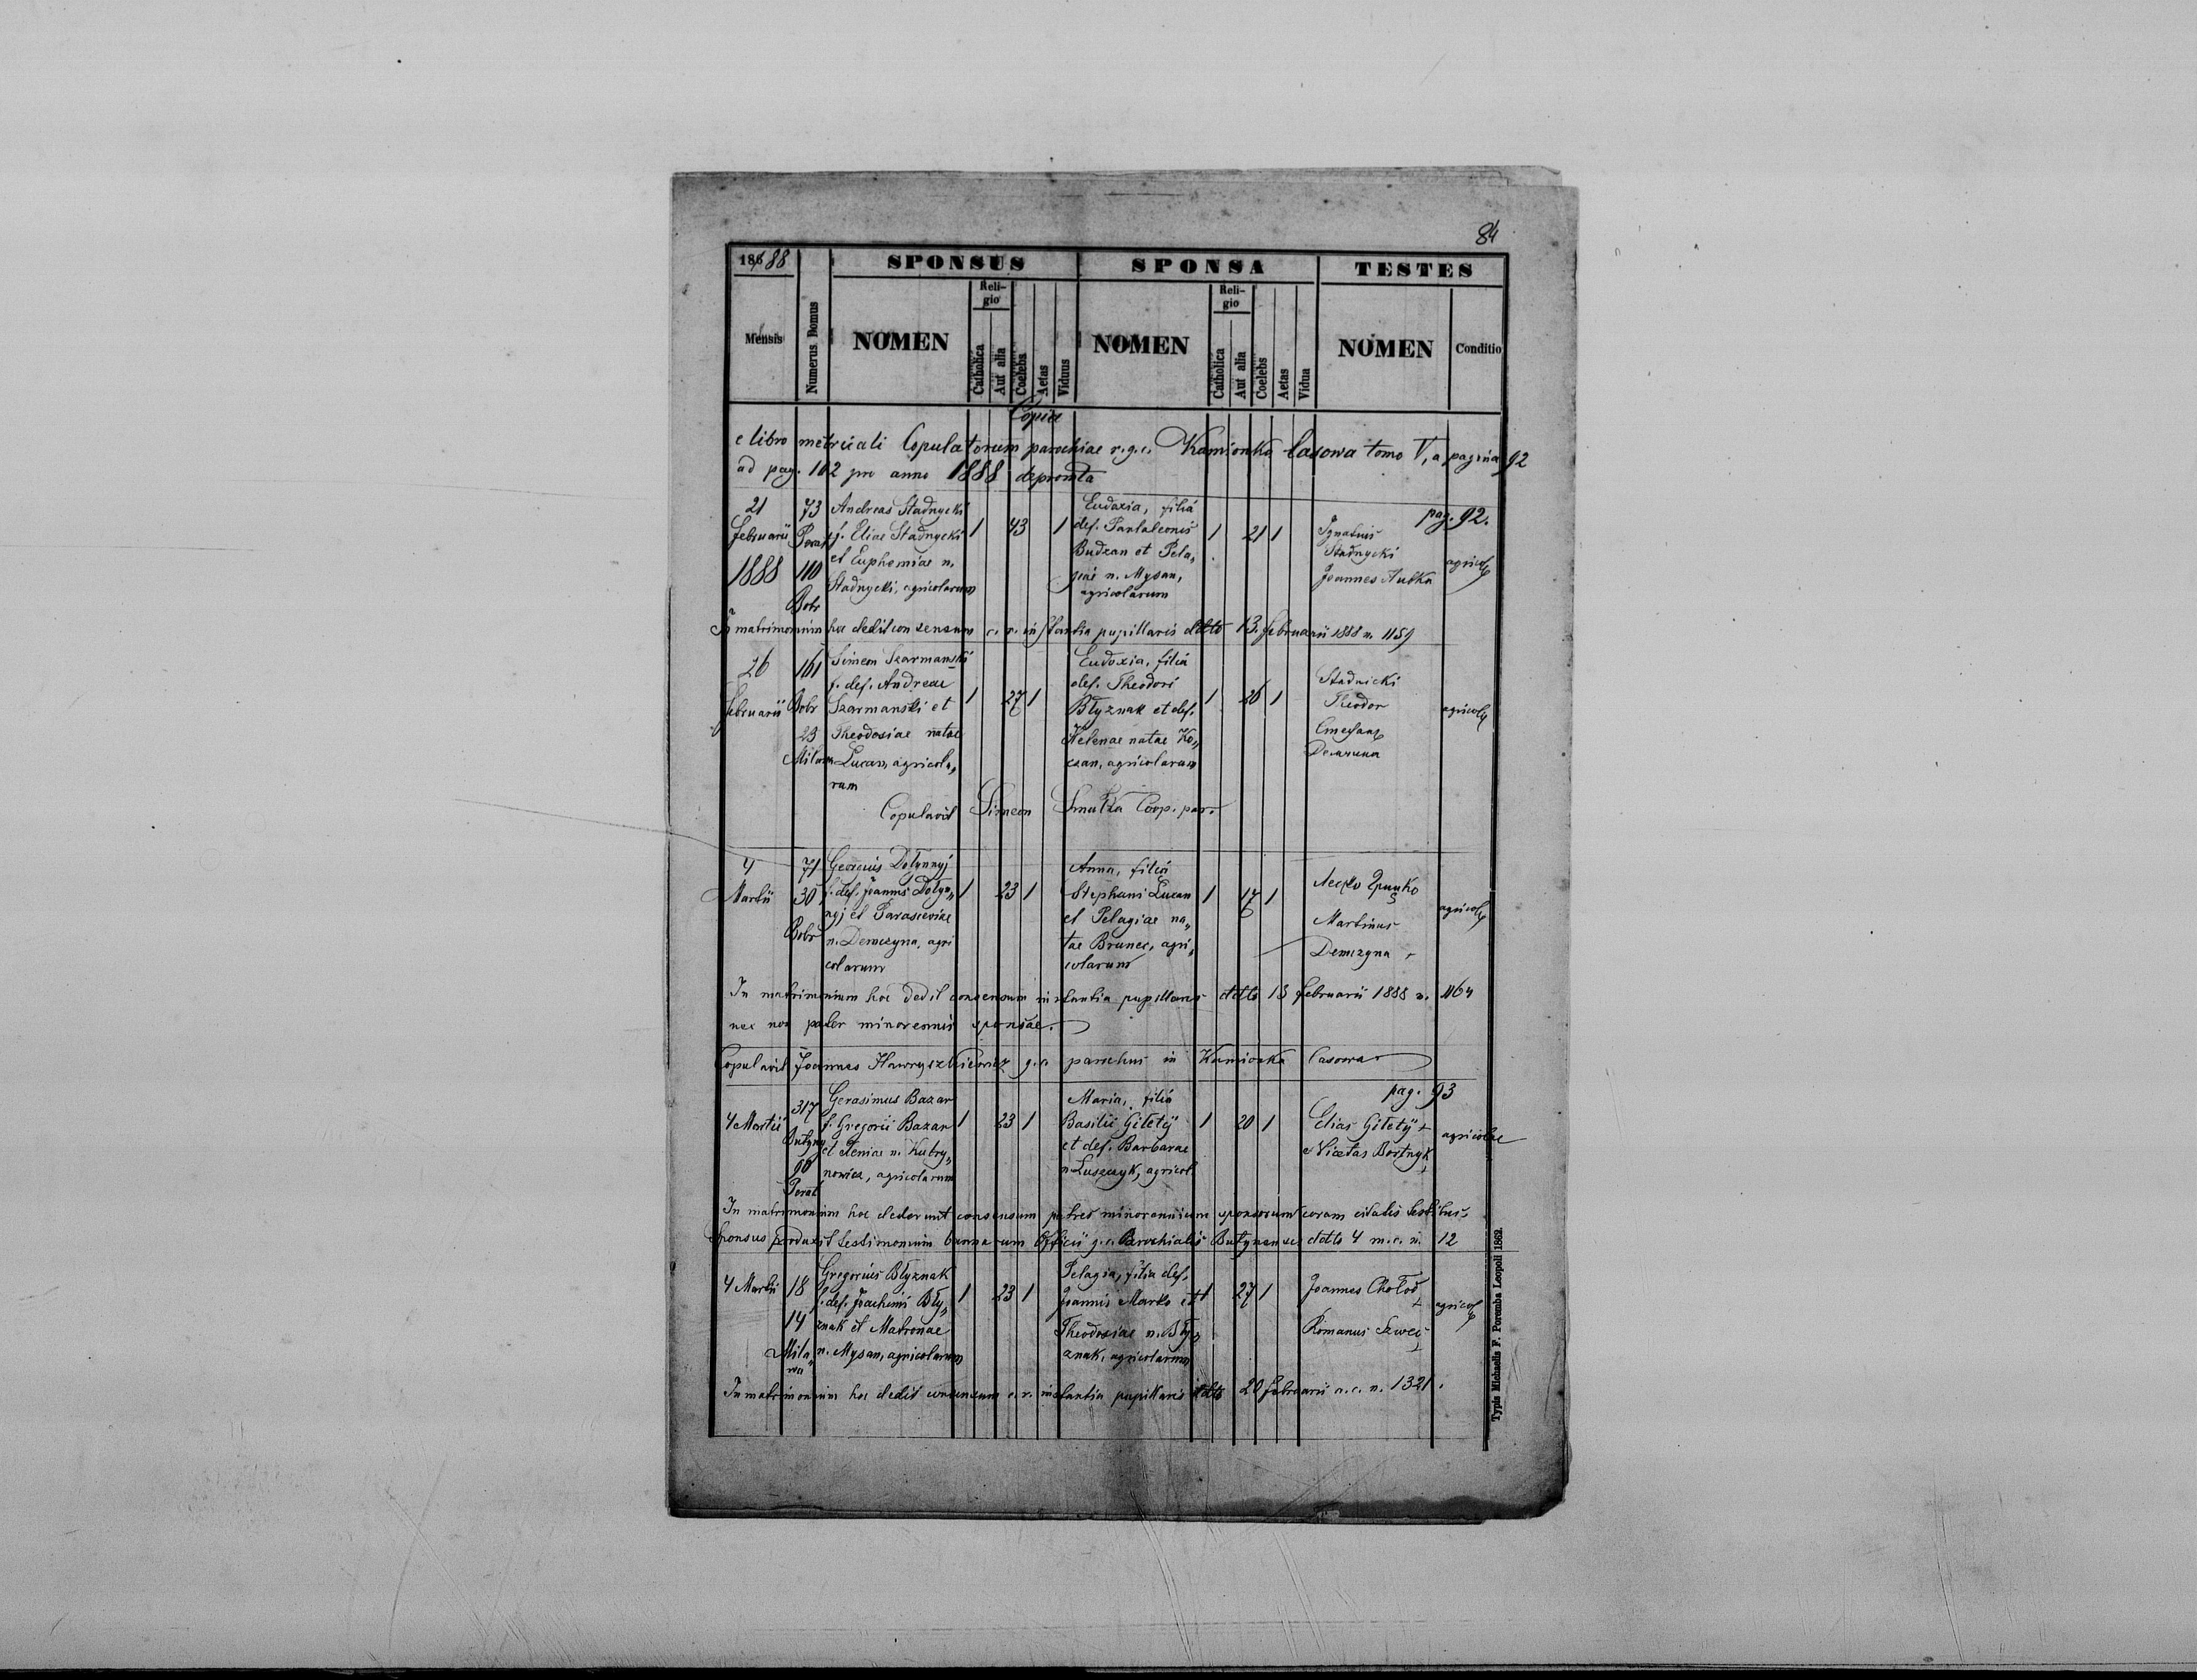 84
186 88
SPONSUS
SPONSA
TESTES
Mensis
Numerus Domus
NOMEN
Religio
Catholica
Aut alia
Coelebs
Aetas
Viduus
NOMEN
Religio
Catholica
Aut alia
Coelebs
Aetas
Vidua
NOMEN
Conditio
Copia
e libro metricali Copulatorum parochiae r.g.c. Kamionka lasowa tomo V, a pagina 92
ad pag. 102 pro anno 1888 depromta
pag. 92.
21
Februarii
1888
73
110
Bobr
Andreas Stadnycki
f. Eliae Stadnycki
et Euphemiae n.
Stadnycki, agricolarum
1 43 1
Eudoxia, filia
def. Pantaleonis
Budzan et Pela„
giae n. Mysan,
agricolarum
1 21 1
Ignatius
Stadnycki
Joannes Autka
agricol
In matrimonium hoc dedit consensum c.r. instantia pupillaris ddtto 13. februarii 1888 n. 1159
26
februarii
161
Bobr
23
Simeon Szarmanski
f. def. Andreae
Szarmanski et
Theodosiae natae
Lucan, agricola„
rum
1 27 1
Eudoxia, filia
def. Theodori
Błyznak et def.
Helenae natae Ko„
czan, agricolarum
1 26 1
Stadnicki
Theodor
Стефанъ
Демчина
agricol
Copulavit Simeon Smulka Coop. par.
4
Martii
71
30
Bobr
Georgius Dołynnyj
f. def. Joannis Dołyn„
nyj et Parasceviae
n. Demczyna, agri
colarum
1 23 1
Anna, filia
Stephani Lucan
et Pelagiae na„
tae Brunec, agri„
colarum
1 17 1
Лесько Гринко
Martinus
Demczyna
agricol
In matrimonium hoc dedit consensum instantia pupillaris ddtto 13 februarii 1888 n. 1164
nec non pater minorennis sponsae.
Copulavit Joannes Hawryszkiewicz g.c. parochus in Kamionka lasowa
pag. 93
4 Martii
317
Butyny
90
Gerasimus Bazan
f. Gregorii Bazan
et Xeniae n. Kutry„
nowicz, agricolarum
1 23 1
Maria, filia
Basilii Giletÿ
et def. Barbarae
n. Luszczyk, agricol.
1 20 1
Elias Giletÿ +
Nicetas Bortnyk +
agricolae
In matrimonium hoc dederunt consensum patres minorennium sponsorum coram citatis testibus.
Sponsus produxit testimonium bannarum Officii g.c. Parochialis Butynensis ddtto 4 m.c. n. 12
4 Martii
18
14
Mila„
wa
Gregorius Błyznak
f. def. Joachimi Bły„
znak et Matronae
n. Mysan, agricolarum
1 23 1
Pelagia, filia def.
Joannis Marko et
Theodosiae n. Bły„
znak, agricolarum
1 27 1
Joannes Chołod +
Romanus Szwec +
agricol
In matrimonium hoc dedit consensum c.r. instantia pupillaris ddtto 20 februarii a.c. n. 1321.
Typis Michaelis F. Poremba Leopoli 1862.